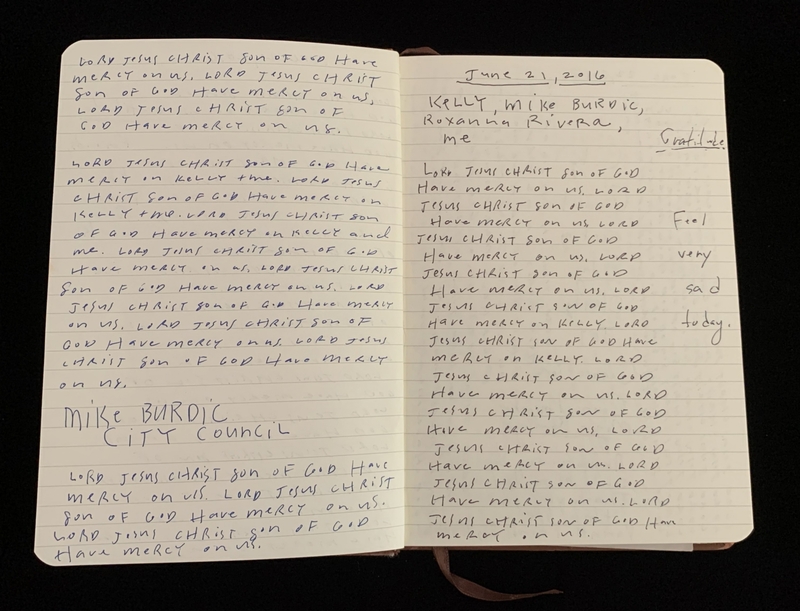 LORD JESUS CHRIST Son OF GOD Have
meRCY on us. LORD JESUS CHRIST
Son OF GOD Have meRCY on us.
LORD JESUS CHRIST Son OF
GOD Have meRCY on us.
LORD JESUS CHRIST Son OF GOD Have
meRCY on KeLLY +me. LORD JESUS
CHRIST Son OF GOD Have meRCY on
KeLLY +me. LORD JESUS CHRIST Son
OF GOD Have meRCY on KeLLY and
me. LORD JESUS CHRIST Son OF GOD
Have meRCY on us. LORD JESUS CHRIST
Son OF GOD Have meRCY on us. LORD
JESUS CHRIST Son OF GOD Have meRCY
on us. LORD JESUS CHRIST Son OF
GOD Have meRCY on us. LORD JESUS
CHRIST Son OF GOD Have meRCY
on us.
MIKE BURDIC
CITY COUNCIL
LORD JESUS CHRIST Son OF GOD Have
meRCY on us. LORD JESUS CHRIST
Son OF GOD Have meRCY on us.
LORD JESUS CHRIST Son OF GOD
Have meRCY on us.
June 21, 2016
KeLLY, Mike BURDIC,
Roxanna Rivera,
me
Gratitude
LORD JESUS CHRIST Son OF GOD
Have meRCY on us. LORD
JESUS CHRIST Son OF GOD
Have meRCY on us. LORD
Feel
JESUS CHRIST Son OF GOD
Have meRCY on us. LORD
very
JESUS CHRIST Son OF GOD
Have meRCY on us. LORD
sad
JESUS CHRIST Son OF GOD
Have meRCY on KeLLY. LORD
today.
JESUS CHRIST Son OF GOD Have
meRCY on KeLLY. LORD
JESUS CHRIST Son OF GOD
Have meRCY on us. LORD
JESUS CHRIST Son OF GOD
Have meRCY on us. LORD
JESUS CHRIST Son OF GOD
Have meRCY on us. LORD
JESUS CHRIST Son OF GOD
Have meRCY on us. LORD
JESUS CHRIST Son OF GOD Have
meRCY on us.